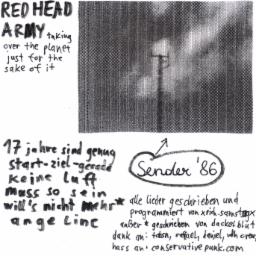 RED HEAD
ARMY taking
over the planet
just for the
sake of it
17 jahre sind genug
start-ziel-gerade
keine luft
muss so sein
will's nicht mehr*
angeline
Sender '86
alle lieder geschrieben und
programmiert von
außer * geschrieben von dackelblut
dank an:
hass an: conservativepunk.com